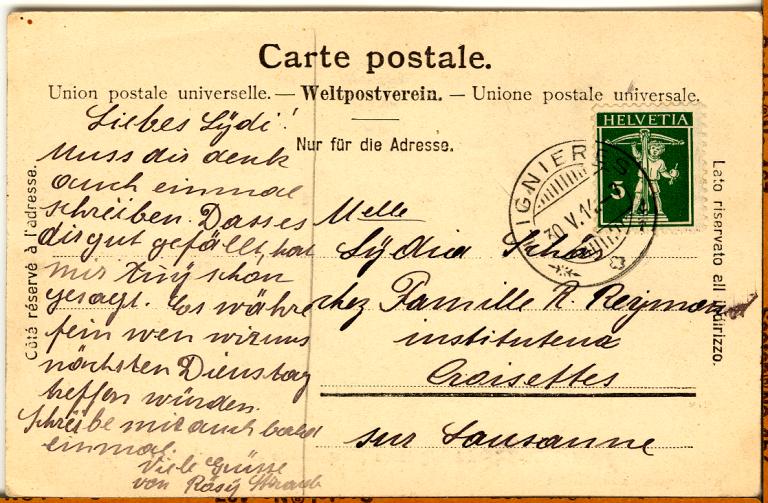 Carte postale.
Union postale universelle. — Weltpostverein. — Unione postale universale.
Nur für die Adresse.
Côté réservé à l'adresse.
Lato riservato all'indirizzo.
Liebes Lÿdi!
Muss dir denk
auch einmal
schreiben. Dass es
dir gut gefällt, hat
mir schon
gesagt. Es währe
fein wen wir uns
nächsten Dienstag
treffen würden.
Schreibe mir auch bald
einmal
Viele Grüsse
von Rösÿ
HELVETIA
5
LIGNIERES
30.V.14
Melle
Lÿdia
chez Famille R. Reymond
instituteur
Croisettes
sur Lausanne